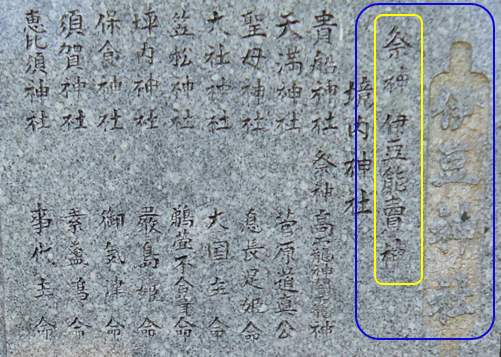 伊豆神社
祭神 伊豆能賣神
境内神社
貴船神社 祭神 高龗神闇龗神
天満神社 菅原道真公
聖母神社 息長足姫命
大社神社 大国主命
笠松神社 鵜葺不合葺命
坪内神社 厳島姫命
保食神社 御気津命
須賀神社 素盞嗚命
恵比須神社 事代主命